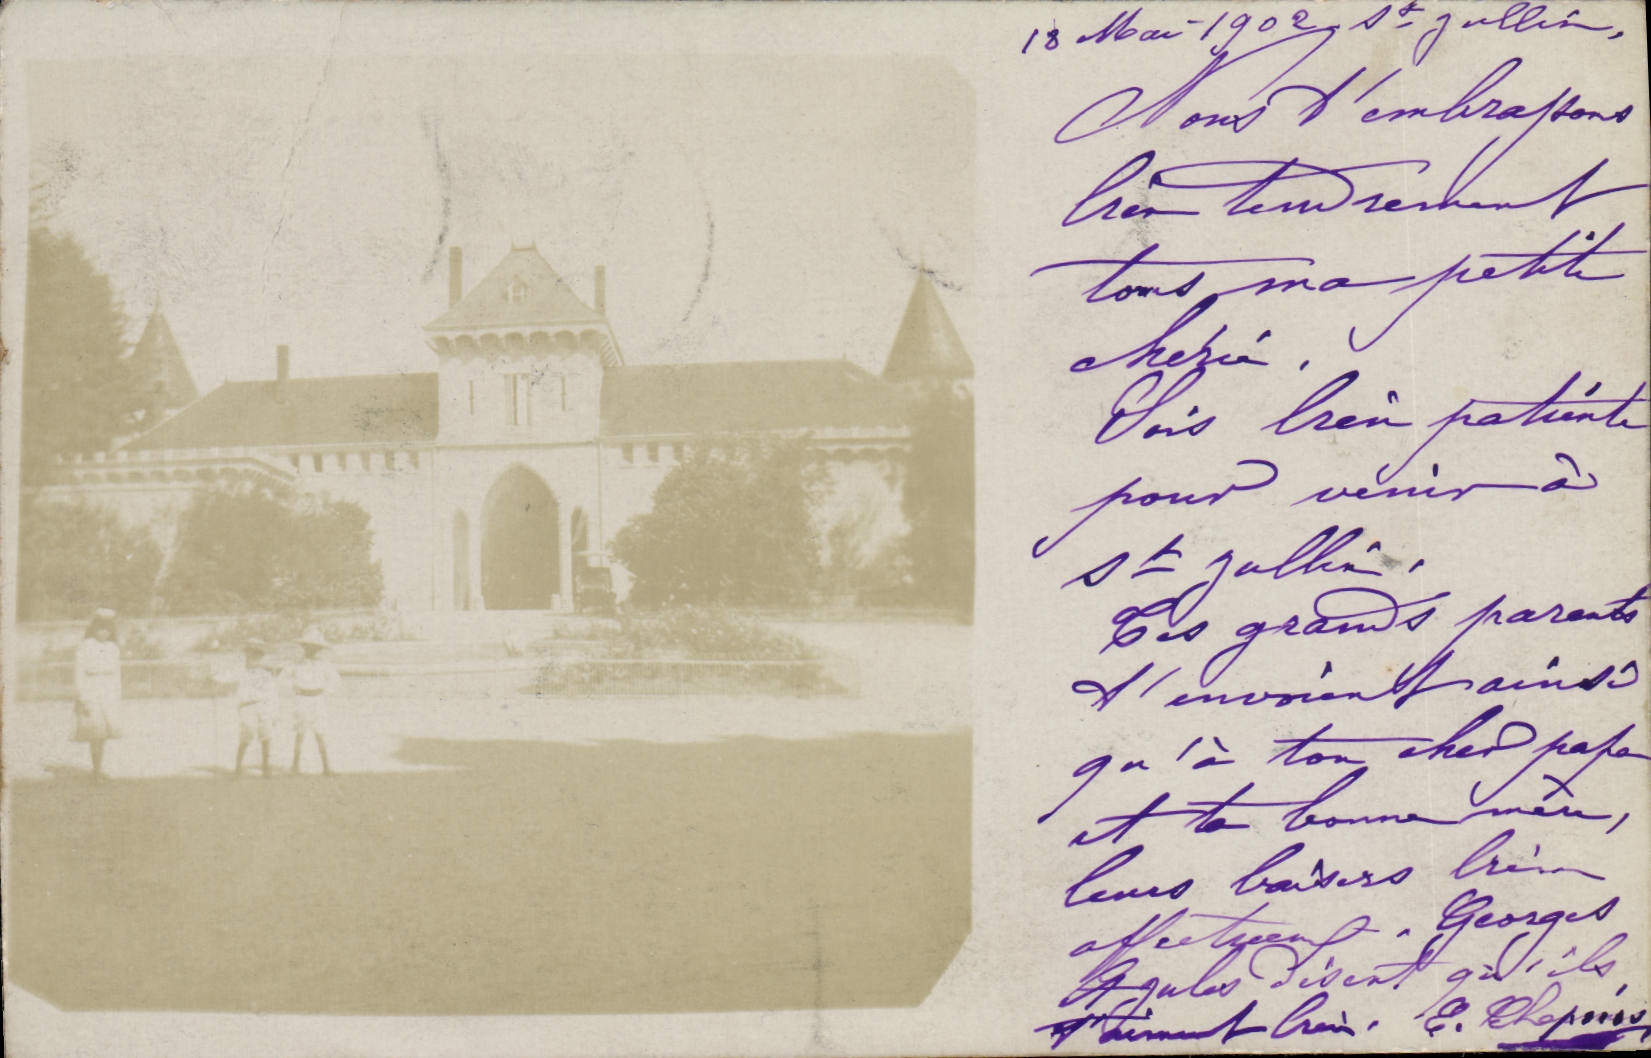 18 Mai 1902. St Jullin,
Nous t'embrassons
bien tendrement
tous, ma petite
chérie.
Sois bien patiente
pour venir à
St Jullin.
Tes grands parents
t'envoient ainsi
qu'à ton cher papa
et ta bonne mère,
leurs baisers bien
affectueux. Georges
& Jules disent qu'ils
t'aiment bien. E.